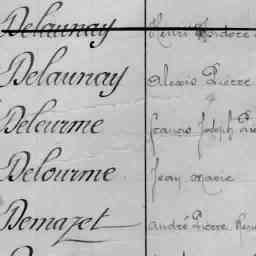 Delaunay Henri Isidore
Delaunay Alexis Pierre
Deleurme Francis Joseph
Delourme Jean Marie
Demazet André Pierre